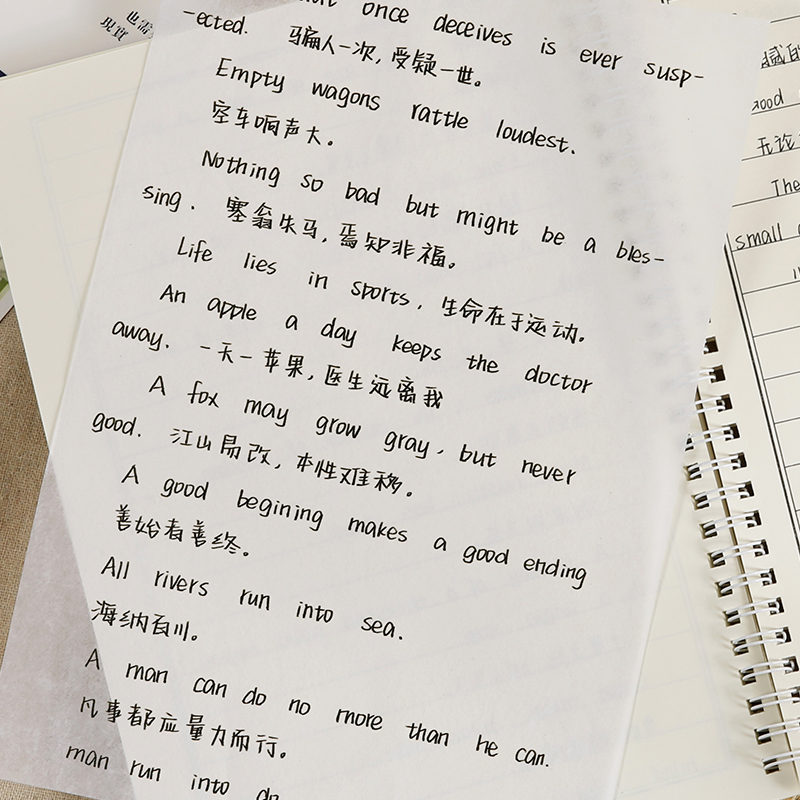 也需
現實
once deceives is ever susp-
-ected. 骗人一次，受疑一世。
Empty wagons rattle loudest.
空车响声大。
Nothing so bad but might be a bles-
sing. 塞翁失马，焉知非福。
Life lies in sports, 生命在于运动。
An apple a day keeps the doctor
away. 一天一苹果，医生远离我
A fox may grow gray, but never
good. 江山易改，本性难移。
A good begining makes a good ending
善始者善终。
All rivers run into sea.
海纳百川。
A man can do no more than he can.
凡事都应量力而行。
man run into
good
无论
The
small